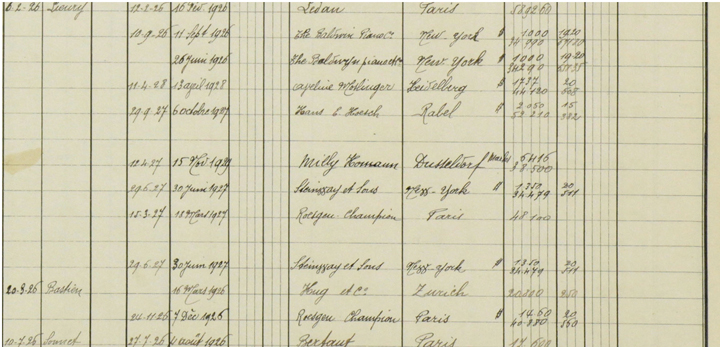 6-2-26 Fleury 12-2-26 16 Fév. 1926 Ledan Paris 58926
10-9-26 11 Sept 1926 The Baldwin Piano Cº New-York $ 1000 19.20
34990
26 Juin 1926 The Baldwyn piano Cº New York $ 1000 19-20
34290
11-4-28 13 april 1928 Heidelberg $ 1737 20
44120 508
29.9.27 6 octobre 1927 Hans C. Hoesch Rabel $ 2050 15
52210 332
12.4.27 15 Nov. 1929 Milly Homann Dusseldorf Marks 6415
38.500
29.6.27 30 Juin 1927 Steinway et Sons New-York $ 1350 20
34479 511
15.3.27 18 Mars 1927 Roesgen-Champion Paris 48100
29.6.27 30 Juin 1927 Steinway et Sons New-York $ 1350 20
34479 511
20-3-26 Bastien 16 Mars 1926 Hug et Cº Zurich 20800 850
24.11.26 7 Déc 1926 Roesgen Champion Paris $ 1460 20
40880 560
10-7.26 Sonnet 27.7.26 4 août 1926 Paris 17600